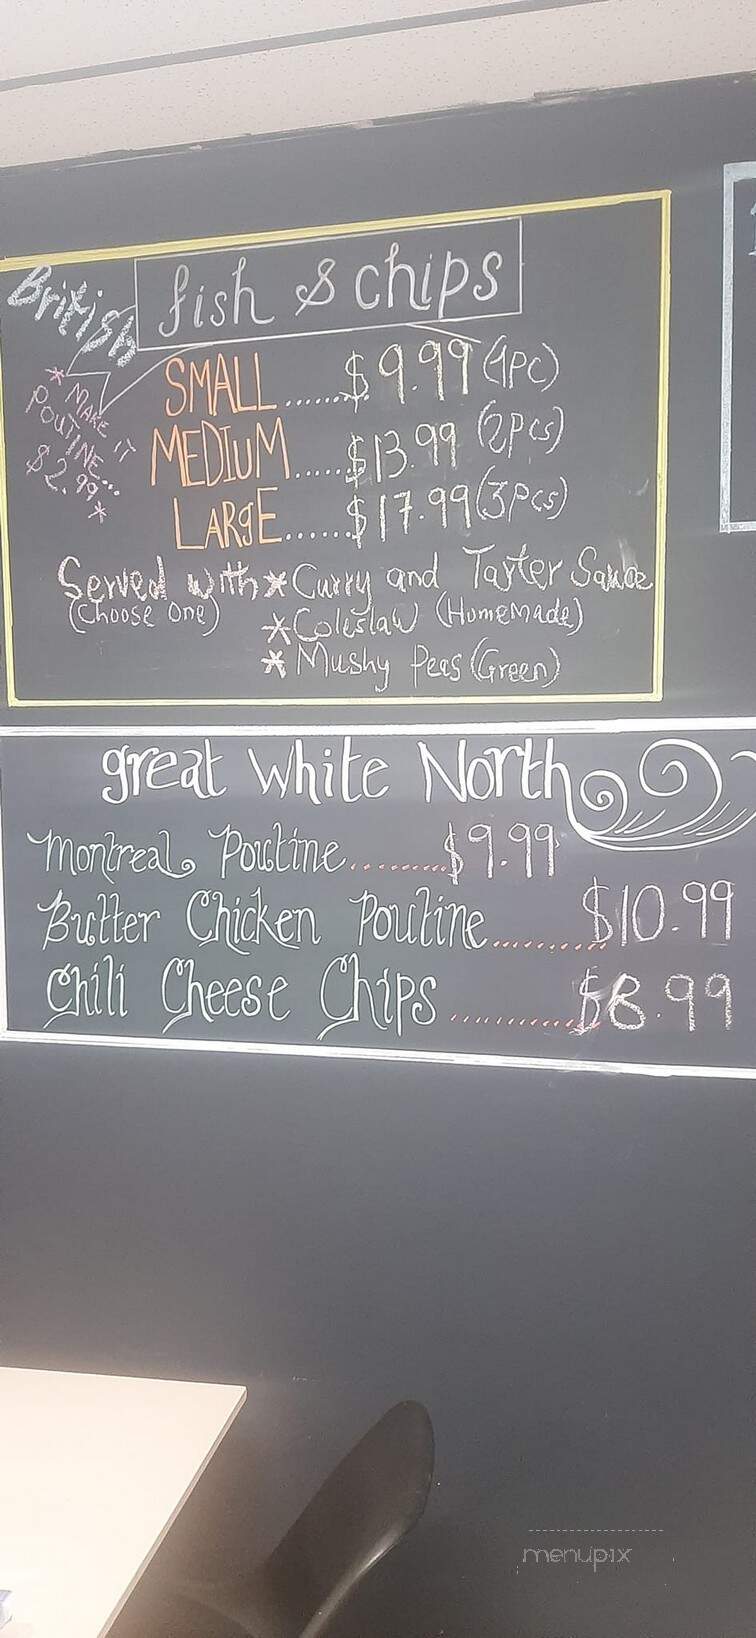 British
fish & chips
SMALL......$9.99 (1PC)
MEDIUM......$13.99 (2PCS)
LARgE......$17.99 (3PCS)
* MAKE IT
POUTINE...
$2.99 *
Served with * Curry and Tarter Sauce
(Choose One)
* Coleslaw (HomeMade)
* Mushy Peas (Green)
great White North
Montreal Poutine.........$9.99
Butter Chicken Poutine..........$10.99
Chili Cheese Chips............$8.99
menupix